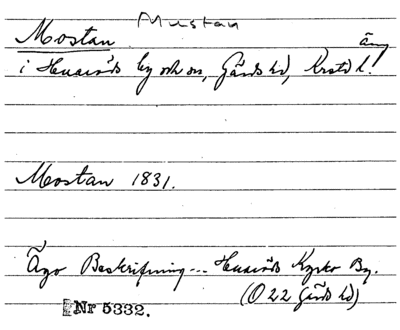 Mustan
Mostan äng
i Huaröds by och sn, Gärds hd, Krstd l.
Mostan 1831.
Ägo Beskrifning... Huaröds Kyrko By.
(O 22 Gärds hd)
Nr 5332.